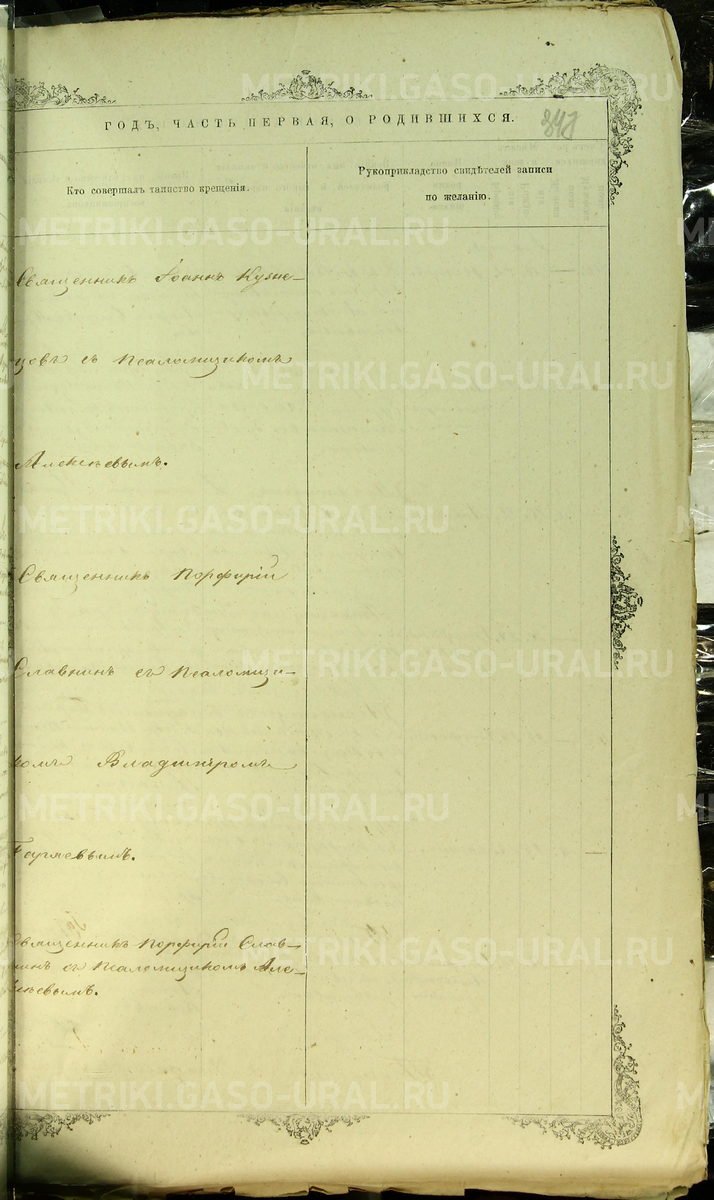 ГОДЪ, ЧАСТЬ ПЕРВАЯ, О РОДИВШИХСЯ.
Кто совершалъ таинство крещенія.
Рукоприкладство свидѣтелей записи
по желанію.
Священникъ Іоаннъ Кузне-
цовъ съ Псаломщикомъ
Алексѣевымъ.
Священникъ Порфирій
Славнинъ съ Псаломщи-
комъ Владиміромъ
Горяевымъ.
Священникъ Порфирій Слав-
нинъ съ Псаломщикомъ Але-
ксѣевымъ.
METRIKI.GASO-URAL.RU
METRIKI.GASO-URAL.RU
METRIKI.GASO-URAL.RU
METRIKI.GASO-URAL.RU
METRIKI.GASO-URAL.RU
METRIKI.GASO-URAL.RU
METRIKI.GASO-URAL.RU
METRIKI.GASO-URAL.RU